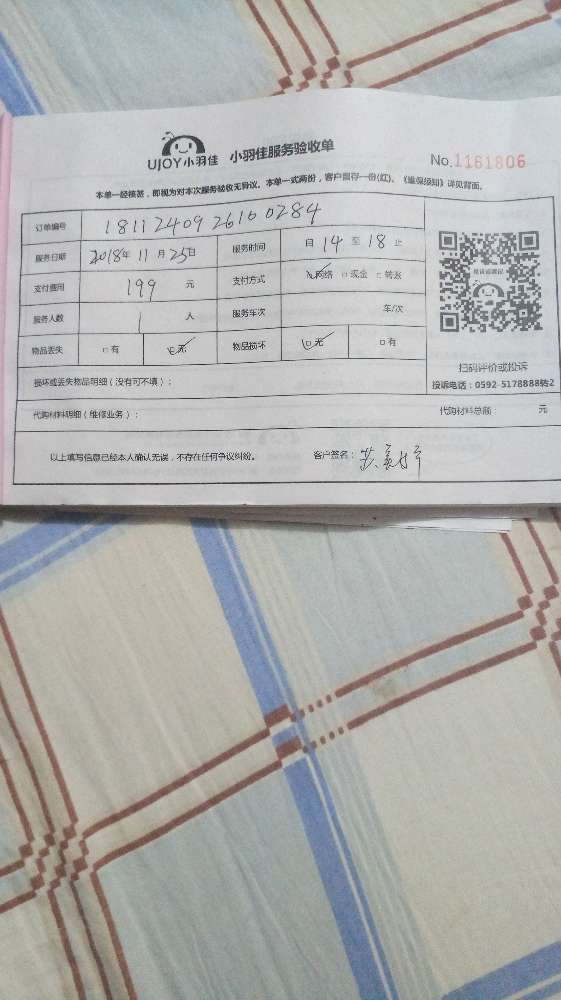 UJOY小羽佳 小羽佳服务验收单
No.1161806
本单一经核签,即视为对本次服务验收无异议。本单一式两份,客户留存一份(红)。《维保须知》详见背面。
订单编号 1811240926100284
服务日期 2018年11月25日 服务时间 自14至18止
支付费用 199 元 支付方式 网络 现金 转账
服务人数 1 人 服务车次 车/次
物品丢失 有 无 物品损坏 无 有
扫码评价或投诉
投诉电话:0592-5178888转2
损坏或丢失物品明细(没有可不填):
代购材料明细(维修业务): 代购材料总额: 元
以上填写信息已经本人确认无误,不存在任何争议纠纷。 客户签名: